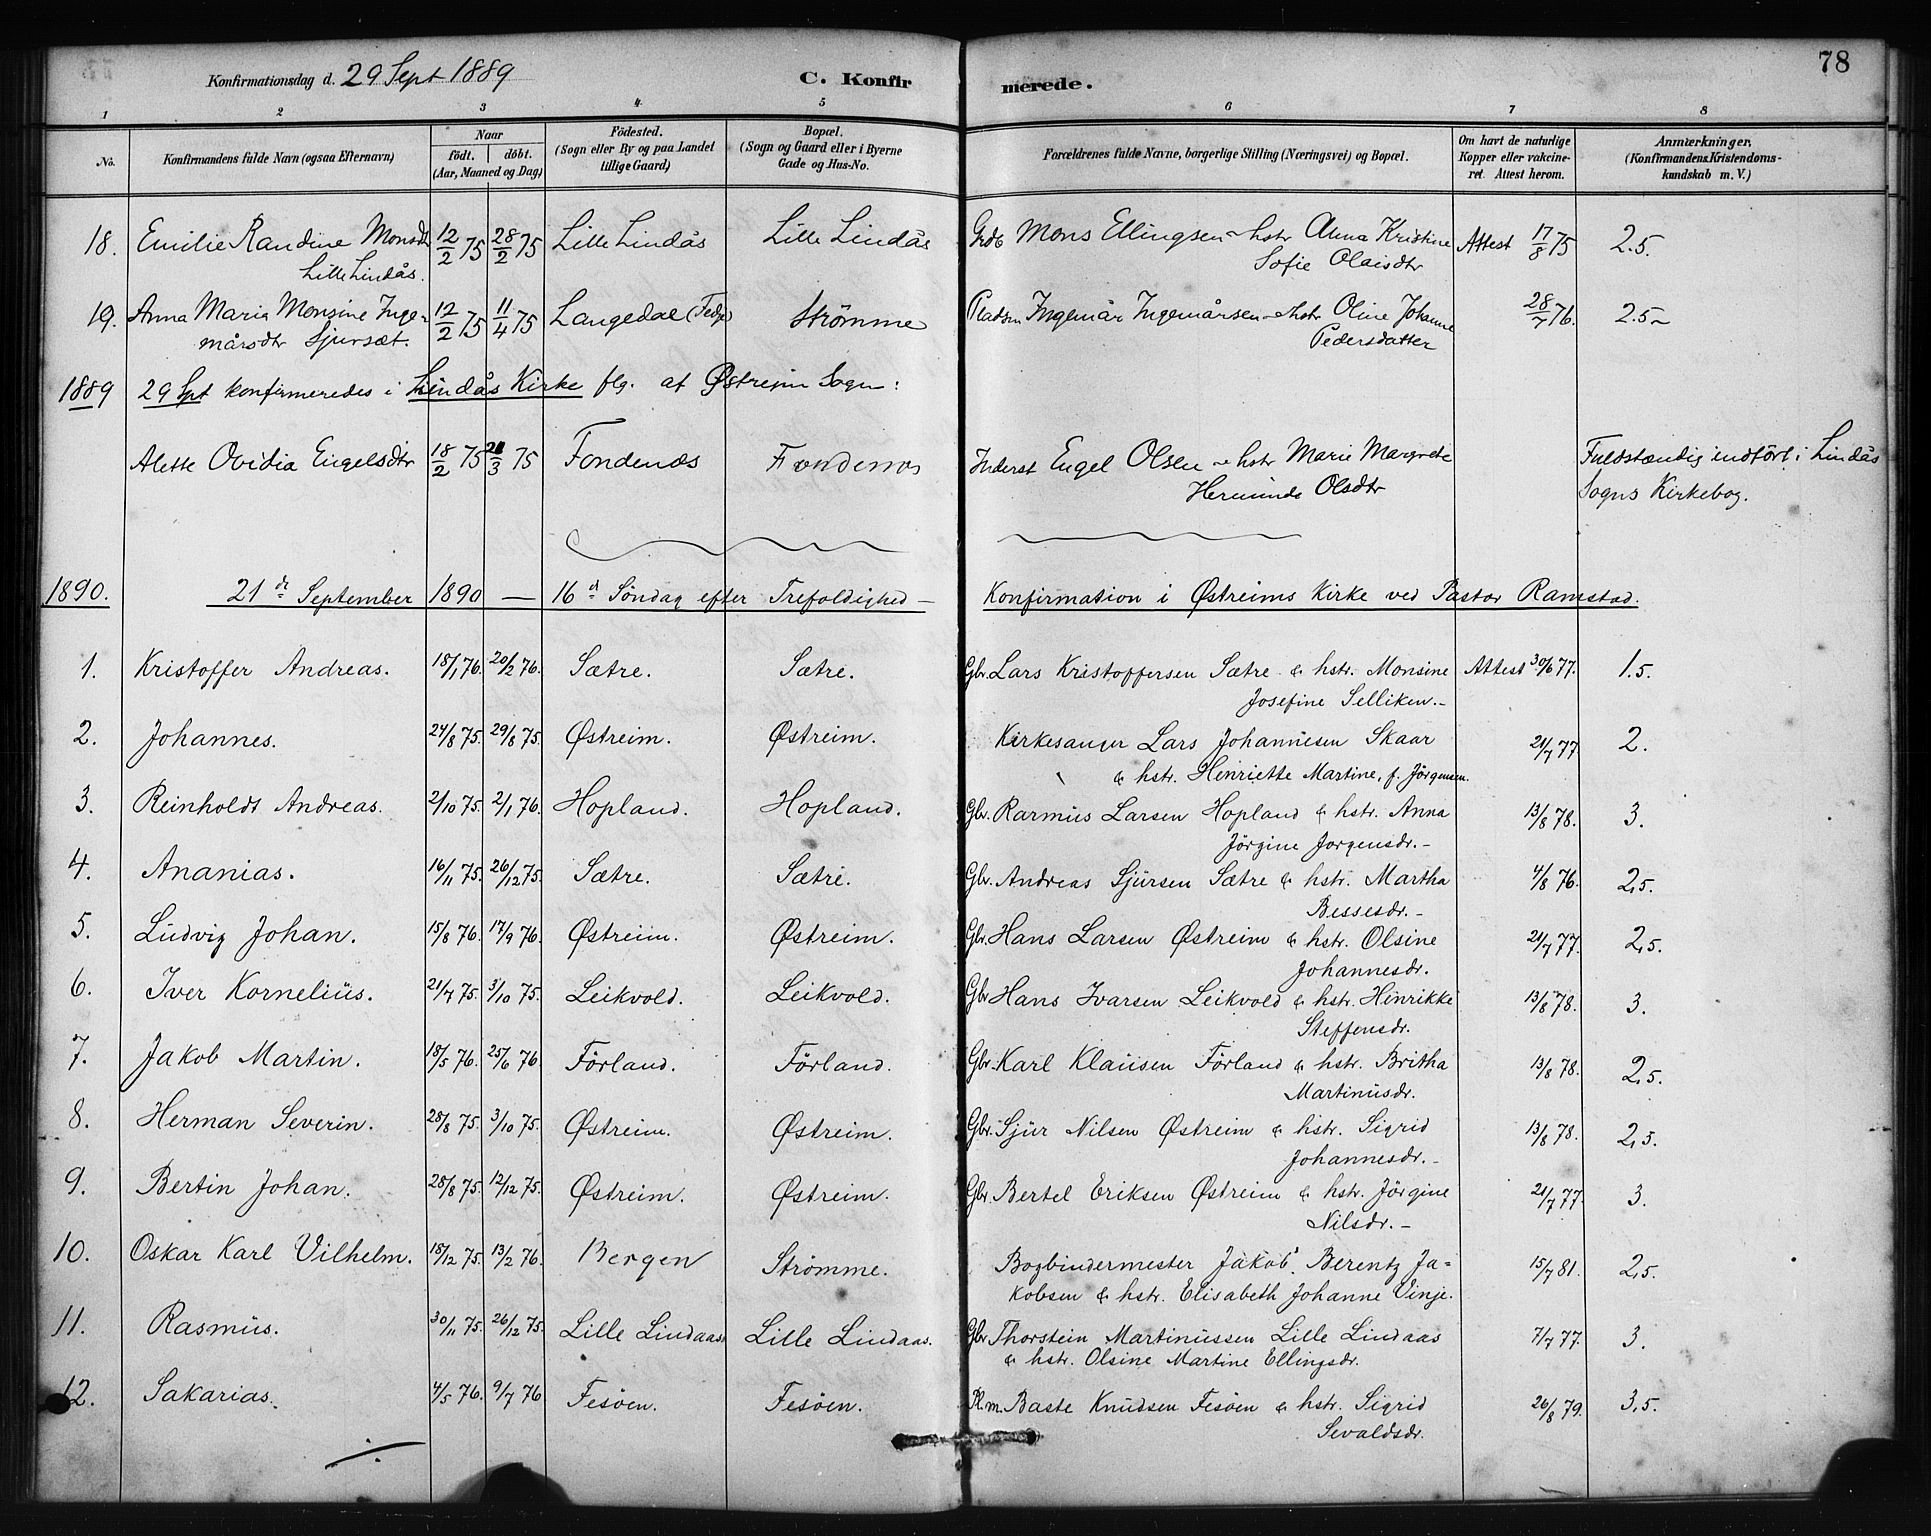 78
Konfirmationsdag d. 29 Sept 1889
C. Konfirmerede.
1 2 3 4 5 6 7 8
No.
Konfirmandens fulde Navn (ogsaa Efternavn)
Naar
födt. döbt.
(Aar, Maaned og Dag)
Födested.
(Sogn eller By og paa Landet
tillige Gaard)
Bopæl.
(Sogn og Gaard eller i Byerne
Gade og Hus-No.
Forældrenes fulde Navne, borgerlige Stilling (Næringsvei) og Bopæl.
Om havt de naturlige
Kopper eller vakcine-
ret. Attest herom.
Anmærkninger,
(Konfirmandens Kristendoms-
kundskab m. V.)
18. Emilie Randine Monsdtr 12/2 75 28/2 75 Lille Lindås Lille Lindås Grdb Mons Ellingsen - hstr Anna Kristine Attest 17/8 75 2.5.
Lille Lindås. Sofie Olaisdtr
19. Anna Maria Monsine Inge- 12/2 75 11/4 75 Langedal (Fedje) Strömme Pladsm Ingemår Ingemårsen - hstr Oline Johanne 28/7 76. 2.5-
mårsdtr Sjursæt. Pedersdatter
1889 29 Spt konfirmeredes i Lindås Kirke flg. af Østreim Sogn:
Alette Ovidia Engelsdtr 18/2 75 21/3 75 Fondenæs Fondenæs Inderst Engel Olsen - hstr Marie Margrete Fuldstændig indfört i Lindås
Hermunds Olsdtr Sogns Kirkebog.
1890. 21de September 1890 — 16d Söndag efter Trefoldighed — Konfirmation i Østreims Kirke ved Pastor Ramstad.
1. Kristoffer Andreas. 18/1 76. 20/2 76. Sætre. Sætre. Gbr. Lars Kristoffersen Sætre & hstr. Monsine Attest 30/6 77. 1.5.
Josefine Selliken.-
2. Johannes. 24/8 75. 29/8 75. Østreim. Østreim. Kirkesanger Lars Johannesen Skaar 21/7 77 2.
& hstr. Henriette Martine, f. Jörgensen.
3. Reinholdt Andreas. 2/10 75. 2/1 76. Hopland. Hopland. Gbr. Rasmus Larsen Hopland & hstr. Anna 13/8 78. 3.
Jörgine Jorgensdr.-
4. Ananias. 16/11 75. 26/12 75. Sætre. Sætre. Gbr. Andreas Sjursen Sætre & hstr. Martha 4/8 76. 2,5.
Bessesdr.-
5. Ludvig Johan. 15/8 76. 17/9 76. Østreim. Østreim. Gbr. Hans Larsen Østreim & hstr. Olsine 21/7 77. 2,5.
Johannesdr.
6. Iver Kornelius. 21/7 75. 3/10 75. Leikvold. Leikvold. Gbr Hans Ivarsen Leikvold & hstr. Hinrikke 13/8 78. 3.
Steffensdr.
7. Jakob Martin. 18/5 76. 25/6 76. Förland. Förland. Gbr. Karl Klausen Förland & hstr. Britha 13/8 78. 2,5.
Martinusdr.
8. Herman Severin. 28/8 75. 3/10 75. Østreim. Østreim. Gbr. Sjur Nilsen Østreim & hstr. Sigrid 13/8 78. 2,5.
Johannesdr.-
9. Bertin Johan. 28/8 75. 12/12 75. Østreim. Østreim. Gbr. Bertel Eriksen Østreim & hstr. Jörgine 21/7 77. 3.
Nilsdr.-
10. Oskar Karl Vilhelm. 18/12 75. 13/2 76. Bergen Strömme. Bogbindermester Jakob Berentz Ja= 15/7 81. 2,5.
kobsen & hstr. Elisabeth Johanne Vinje.
11. Rasmus. 30/11 75. 26/12 75. Lille Lindaas. Lille Lindaas. Gbr Thorstein Martinussen Lille Lindaas 7/7 77. 3.
& hstr. Olsine Martine Ellingsdr.
12. Sakarias. 4/5 76. 9/7 76 Fesöen. Fesöen. Pl.m. Baste Knudsen Fesöen & hstr. Sigrid 26/8 79. 3,5.
Sevaldsdr.